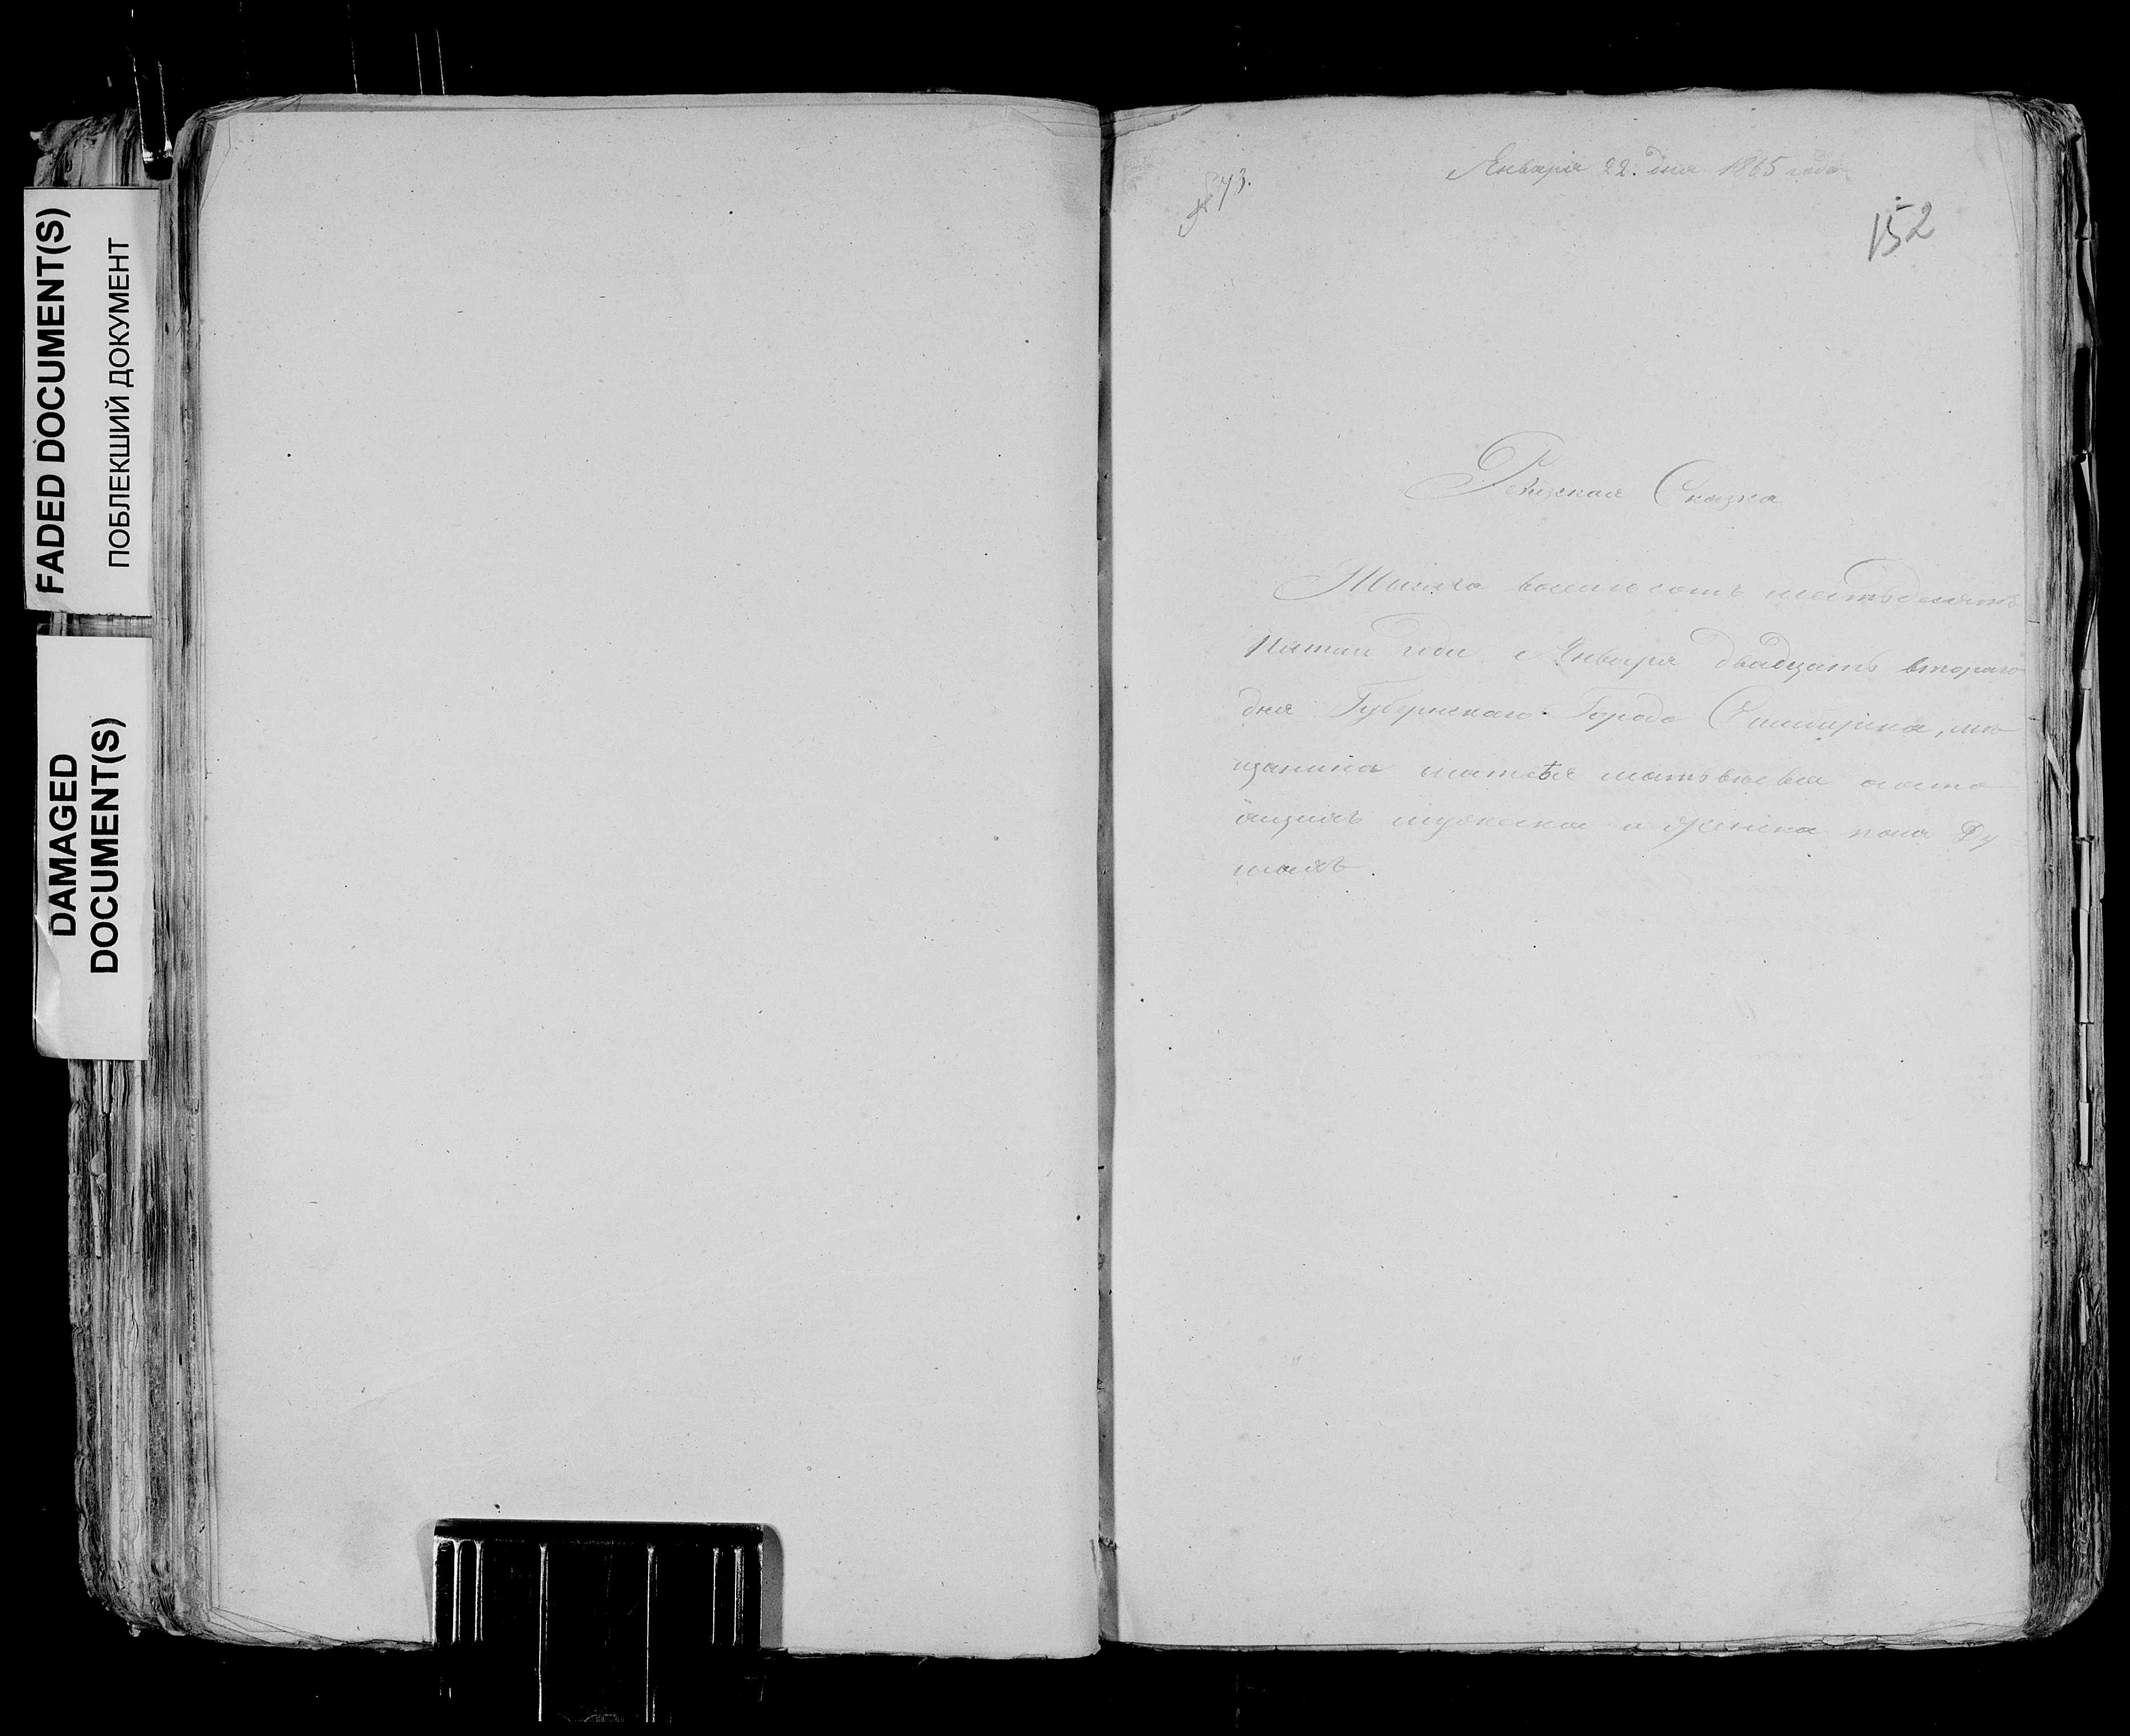 FADED DOCUMENT(S)
ПОБЛЕКШИЙ ДОКУМЕНТ
DAMAGED
DOCUMENT(S)
Января 22. дня 1865 года
№ 73.
152
Ревизская Сказка
Тысяча восемьсотъ шестьдесятъ
Пятаго года Января двадцать втораго
дня Губернскаго Города Симбирска, мѣ
щанина Матвѣя Матвѣева о состо
ящихъ мужеска и женска пола Ду
шахъ.